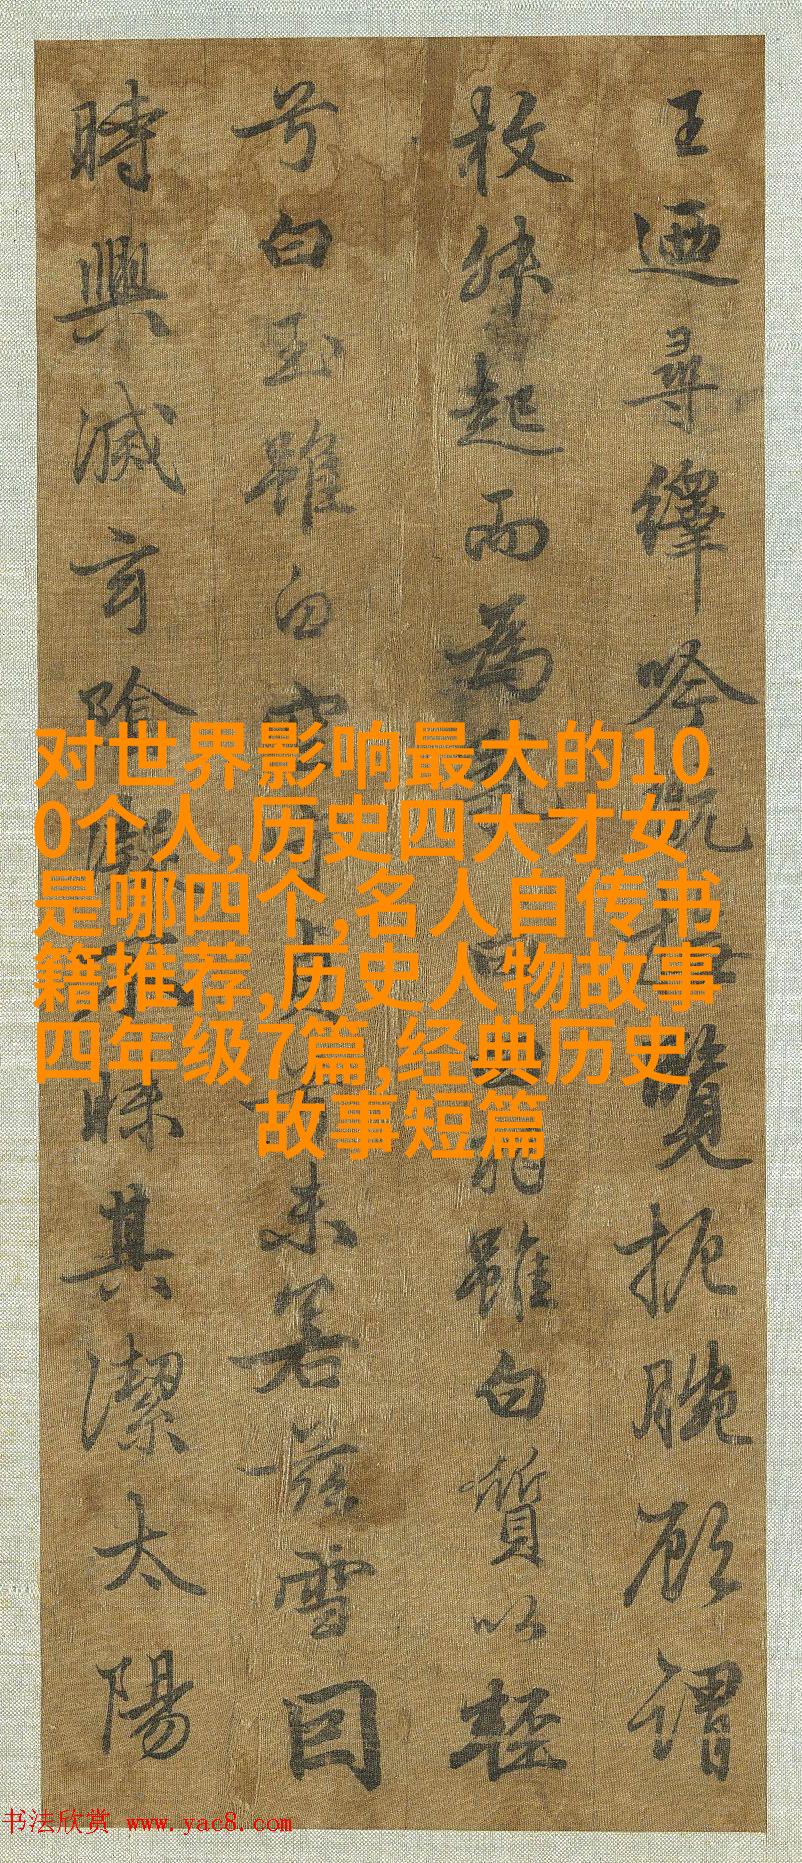 王迺尋繹吟翫撫覽扼腕顧謂
枚叔起而為亂曰羽雖白質以輕
兮白玉雖白空守貞兮未若茲雪因
時興滅玄陰凝不昧其潔太陽
对世界影响最大的10
0个人,历史四大才女
是哪四个,名人自传书
籍推荐,历史人物故事
四年级7篇,经典历史
故事短篇
书法欣赏 www.yac8.com